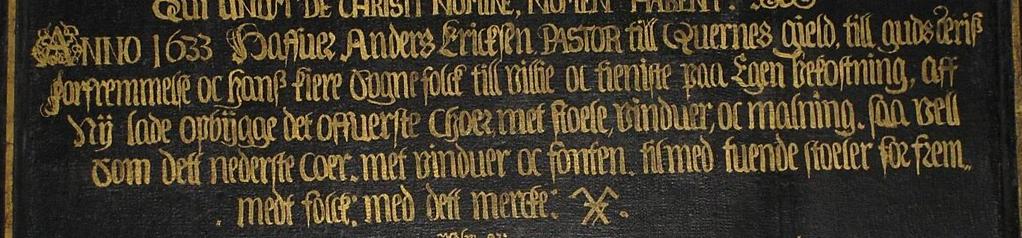 QUI UNUM DE CHRISTI NOMINE, NOMEN HABENT.
ANNO 1633 Haffuer Anders Ericksen PASTOR till Quernes gield, till guds æriß
forfremmelse oc hanß kiere Sogne folck till villie oc tieniste paa Egen bekostning, aff
Nÿ lade opbÿgge det offuerste Choer, met stoele, vinduer, oc malning. saa vell
Som dett nederste Coer. met vinduer oc fonten. til med tuende stoeler for frem„
medt folck: med dett mercke: